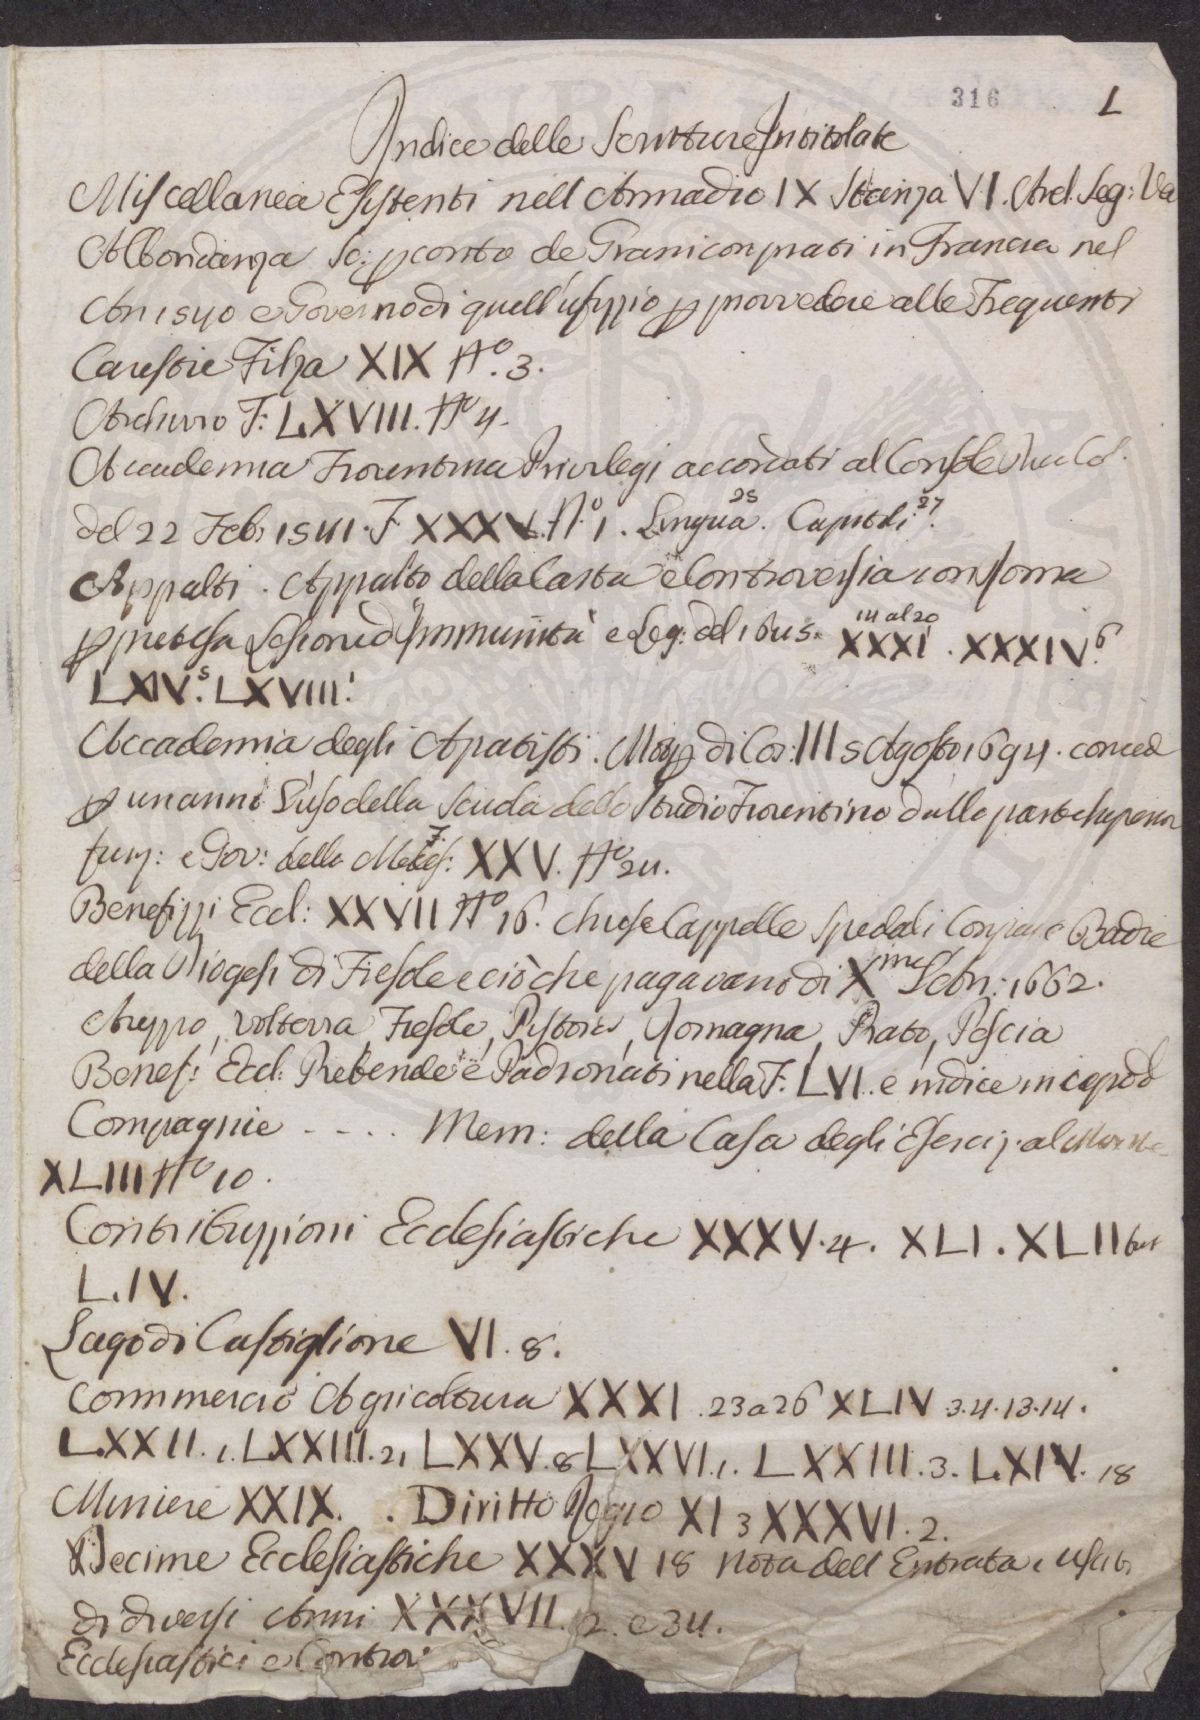 316 L
Indice delle Scritture Intitolate
Miscellanea Esistenti nell Armadio IX Stanza VI. Arch. Seg: Ve
Abbondanza Sc: p conto de Grani conprati in Francia nel
An 1540 e Governo di quell'ufizzio p provvedere alle Frequenti
Carestie Filza XIX Nº. 3.
Archivio F: LXVIII. Nº 4.
Accademia Fiorentina Privilegi accordati al Console
del 22 Feb: 1541. F. XXXV. N.º 1. Lingua 25. Capitoli 27.
Appalti. Appalto della Carta e Controversia con Roma
p pretesa Lesione d'Immunità e Leg: del 1645. XXXI 14 al 20. XXXIV.6
LXIV.5 LXVIII.1
Accademia degli Apatisti. di Cos: III 5 Agosto 1694. conced
p un anno l'uso della Scuola dello Studio Fiorentino dalla parte superior
e Gov: della XXV. Nº 24.
Benefizzi Eccl: XXVII Nº 16. Chiese Cappelle Spedali Compag e Badie
della Diogesi di Fiesole e ciò che pagavano di Xme 1662.
Arezzo, Volterra, Fiesole, Pistoia, Romagna, Prato, Pescia
Benef: Eccl: Prebende e Padronati nella F: LVI. e indice in
Compagnie - - . . Mem: della Casa degli Eserciz. al Monte
XLIII Nº 10.
Contribuzzioni Ecclesiastiche XXXV. 4. XLI. XLII
L.IV.
Lago di Castiglione VI. 8.
Commercio Agricoltura XXXI. 23 a 26 XLIV 3.4.13.14.
LXXII. 1. LXXIII. 2, LXXV. 8 LXXVI. 1. LXXIII. 3. LXIV. 18
Miniere XXIX. . Diritto Regio XI 3 XXXVI. 2.
Decime Ecclesiastiche XXXV 18 Nota dell Entrata e Uscit
di diversi Anni XXXVII. 2. e 34.
Ecclesiastici e Contror